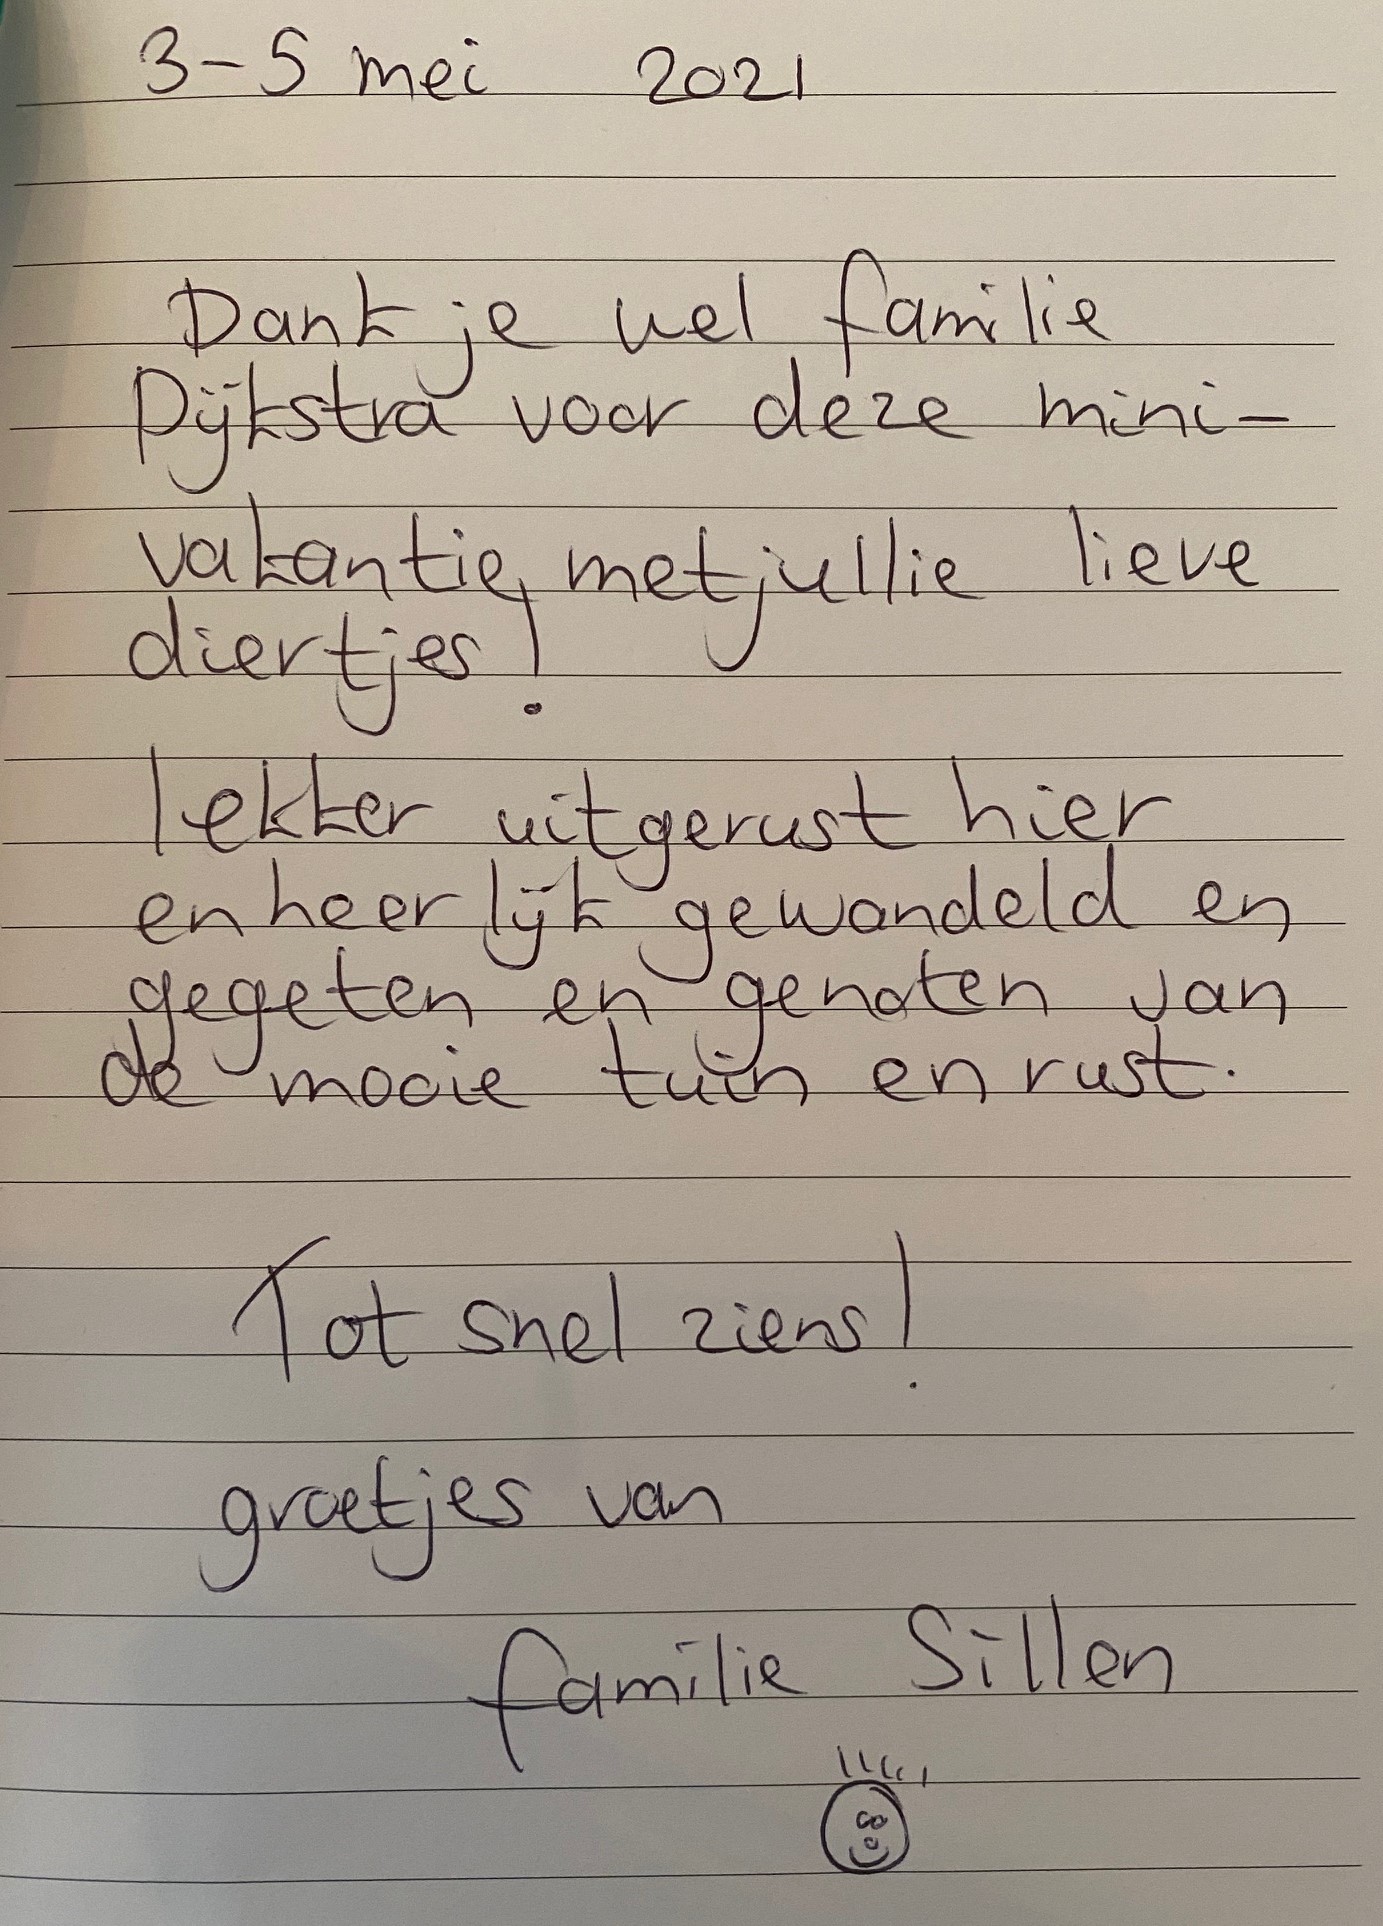 3-5 mei 2021
Dank je wel familie
Dijkstra voor deze mini-
vakantie, met jullie lieve
diertjes!
lekker uitgerust hier
en heerlijk gewandeld en
gegeten en genoten van
de mooie tuin en rust.
Tot snel ziens!
groetjes van
familie Sillen